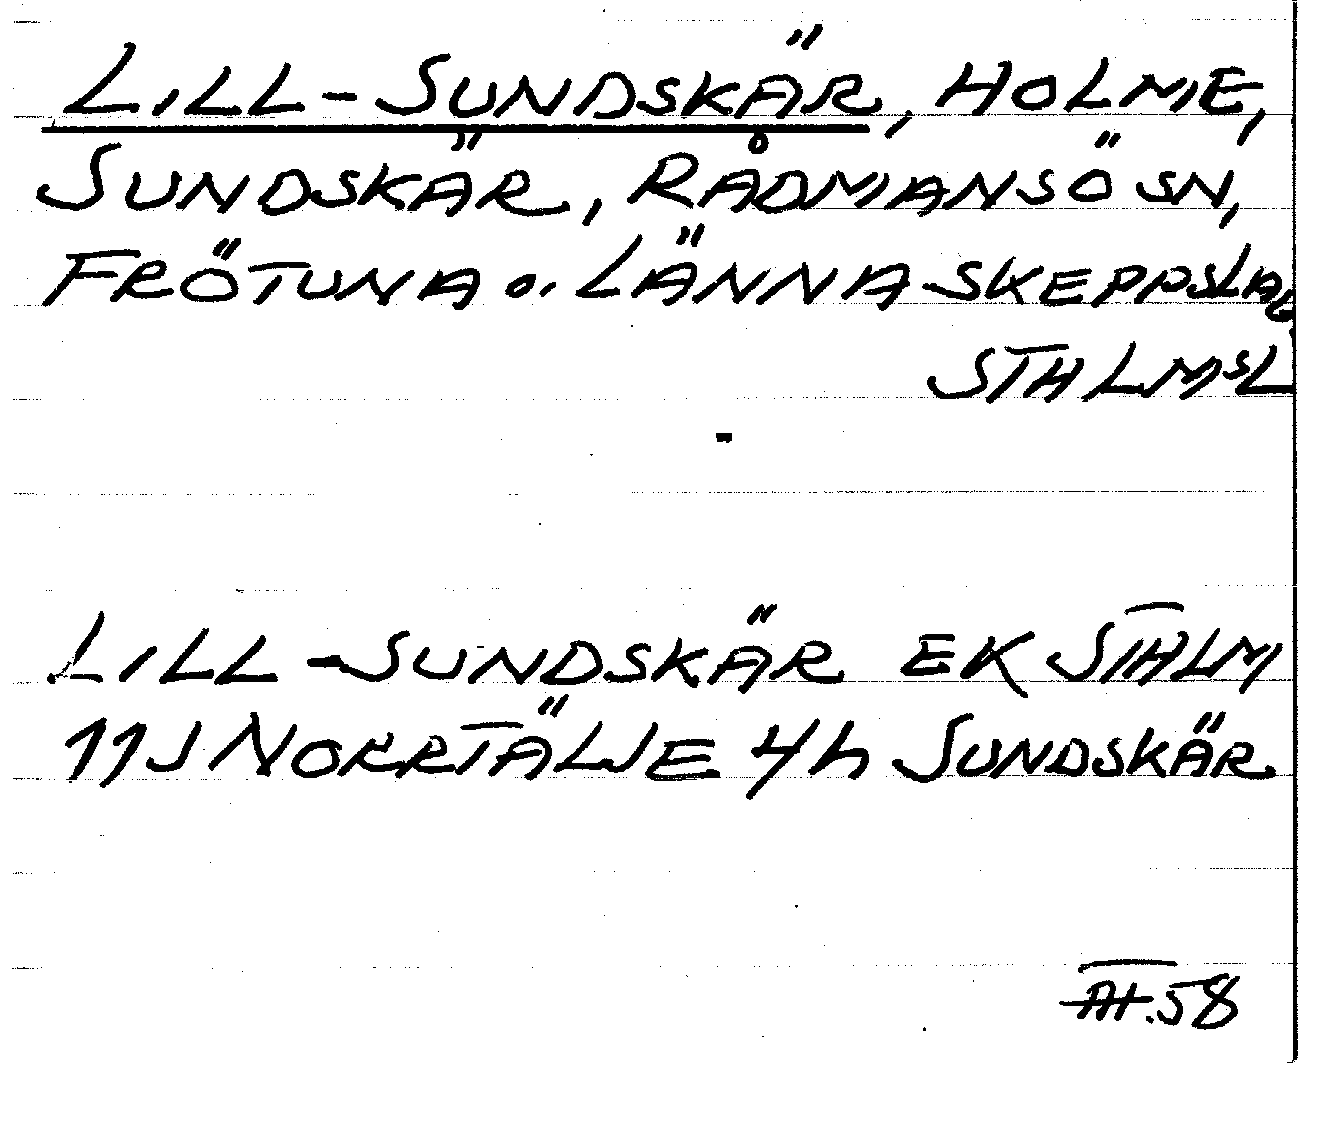 LILL-SUNDSKÄR, HOLME,
SUNDSKÄR, RÅDMANSÖ SN,
FRÖTUNA o. LÄNNA SKEPPSLAG
STHLMSL
LILL-SUNDSKÄR EK STHLM
11J NORRTÄLJE 4h SUNDSKÄR
58